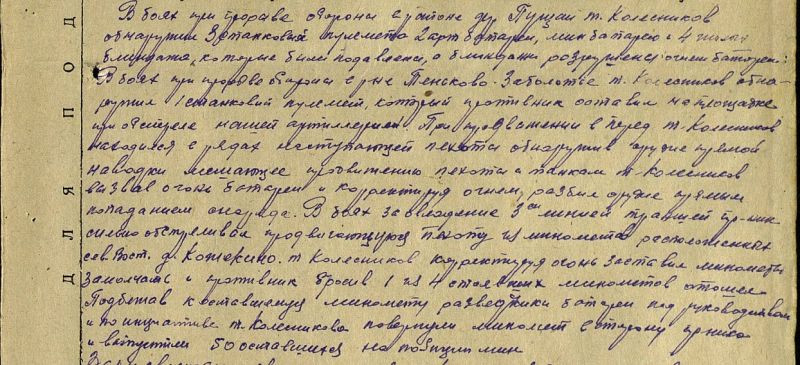 В боях при прорыве обороны в районе дер. Пущаи т. Колесников
обнаружил 3 станковых пулемета 2 арт. батареи, минбатарею и 4 жилых
блиндажа, которые были подавлены, а блиндажи разрушены огнем батареи.
В боях при прорыве обороны в р-не Пеньково-Заболотье т. Колесников обна-
ружил 1 станковый пулемет, который противник оставил на площадке
при обстреле нашей артиллерией. При продвижении вперед т. Колесников
находился в рядах наступающей пехоты обнаружив орудие прямой
наводки мешающее продвижению пехоты и танкам т. Колесников
вызвал огонь батареи и корректируя огнем, разбил орудие прямым
попаданием снаряда. В боях за овладение 3ей линией траншей пр-ник
сильно обстреливал продвигающуюся пехоту из минометов расположенных
сев. вост. д. Кошекино. т. Колесников корректируя огонь заставил минометы
замолчать и противник бросив 1 из 4 стоявших минометов отошел.
Подбежав к оставшемуся миномету разведчики батареи под руководством
и по инициативе т. Колесникова повернули миномет в сторону пр-ника
и выпустили 50 оставшихся на позиции мин
ДЛЯ ПОД